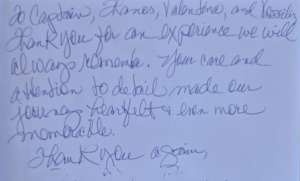 To Captain, Thanos, Valentino, and
Thank you for an experience we will
always remember. Your care and
attention to detail made our
journey heartfelt & even more
memorable.
Thank you again,